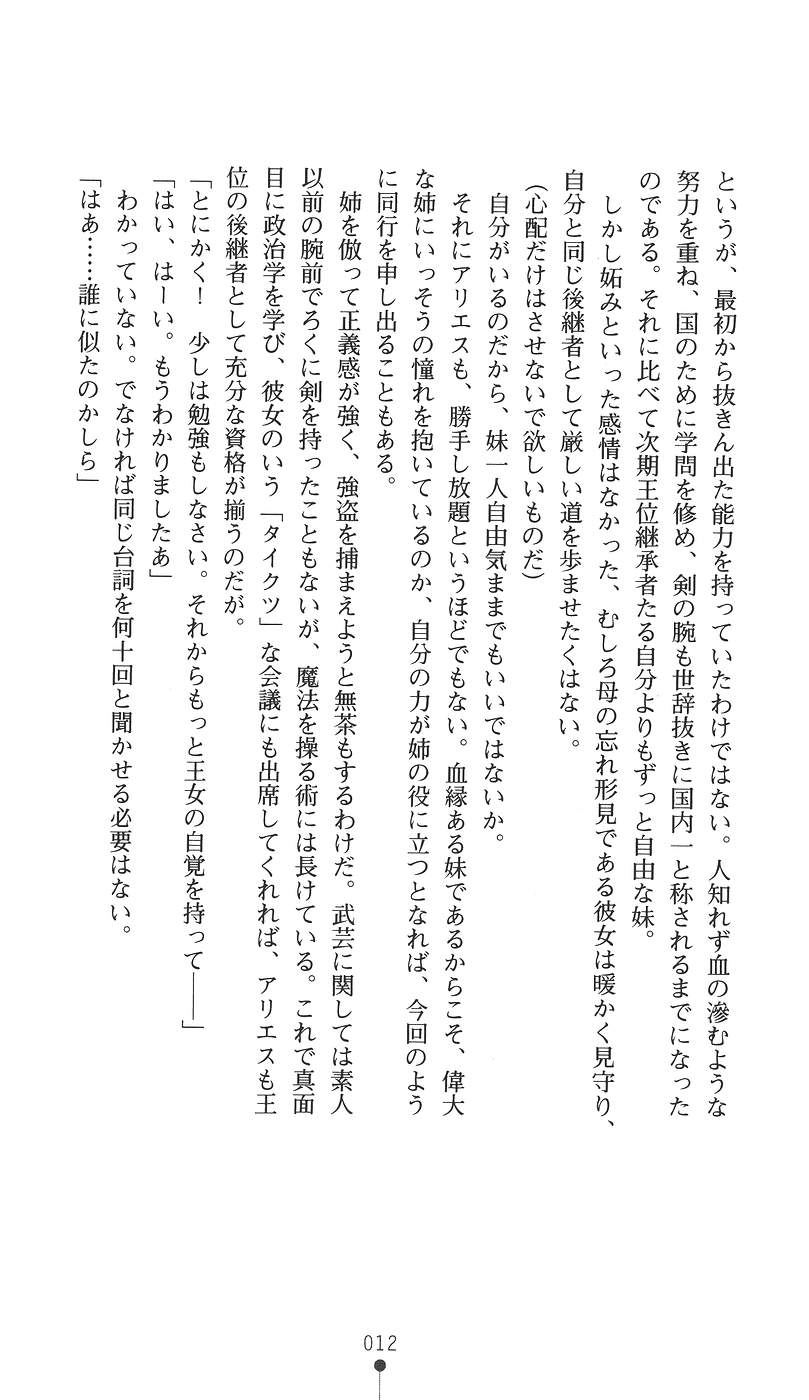 というが、最初から抜きん出た能力を持っていたわけではない。人知れず血の滲むような
努力を重ね、国のために学問を修め、剣の腕も世辞抜きに国内一と称されるまでになった
のである。それに比べて次期王位継承者たる自分よりもずっと自由な妹。
しかし妬みといった感情はなかった、むしろ母の忘れ形見である彼女は暖かく見守り、
自分と同じ後継者として厳しい道を歩ませたくはない。
（心配だけはさせないで欲しいものだ）
自分がいるのだから、妹一人自由気ままでもいいではないか。
それにアリエスも、勝手し放題というほどでもない。血縁ある妹であるからこそ、偉大
な姉にいっそうの憧れを抱いているのか、自分の力が姉の役に立つとなれば、今回のよう
に同行を申し出ることもある。
姉を倣って正義感が強く、強盗を捕まえようと無茶もするわけだ。武芸に関しては素人
以前の腕前でろくに剣を持ったこともないが、魔法を操る術には長けている。これで真面
目に政治学を学び、彼女のいう「タイクツ」な会議にも出席してくれれば、アリエスも王
位の後継者として充分な資格が揃うのだが。
「とにかく！　少しは勉強もしなさい。それからもっと王女の自覚を持って――」
「はい、はーい。もうわかりましたあ」
わかっていない。でなければ同じ台詞を何十回と聞かせる必要はない。
「はぁ……誰に似たのかしら」
012